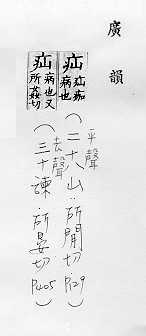 廣韻
疝 疝痂病也（平聲二十八山：所閒切 P129）
疝 病也又所姦切（去聲三十諫：所晏切 P405）